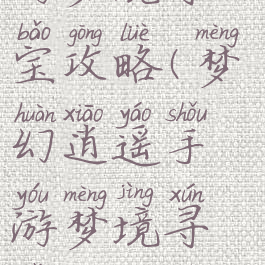 bǎo gōng lüè mèng
宝攻略(梦
huàn xiāo yáo shǒu
幻逍遥手
yóu mèng jìng xún
游梦境寻